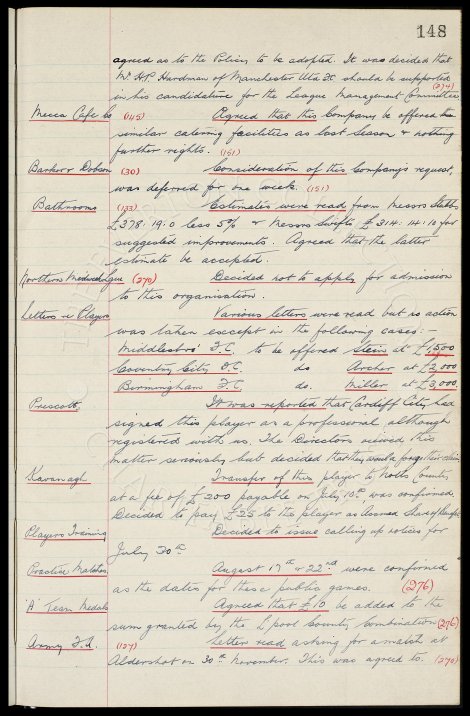 148
agreed as to the Policy to be adopted. It was decided that
Mr H.P. Hardman of Manchester Utd FC should be supported
in his candidature for the League Management Committee (274)
Mecca Cafe Co (145) Agreed that this Company be offered the
similar catering facilities as last season & nothing
further rights. (151)
Barker & Dobson (30) Consideration of this Company's request,
was deferred for one week. (151)
Bathrooms (133) Estimates were read from Messrs Stubbs
£378:19:0 less 5% & Messrs Swifts £314:14:10 for
suggested improvements. Agreed that the latter
estimate be accepted.
Northern Midweek Lgue (270) Decided not to apply for admission
to this organisation.
Letters re Players Various letters were read but no action
was taken except in the following cases:-
Middlesbro' F.C. to be offered Stein at £1,500
Coventry City F.C. do Archer at £2,000
Birmingham F.C. do. Miller at £3,000
Prescott, It was reported that Cardiff City had
signed this player as a professional although
registered with us. The Directors viewed this
matter seriously but decided that they would forego their claim
Kavanagh Transfer of this player to Notts County
at a fee of £200 payable on July 10th was confirmed.
Decided to pay £25 to the player as accrued share of Benefit
Players Training Decided to issue calling up notices for
July 30th
Practice Matches August 17th & 22nd were confirmed
as the dates for these public games. (276)
'A' Team Medals Agreed that £10 be added to the
sum granted by the L'pool County Combination (276)
Army F.A. (127) Letter read asking for a match at
Aldershot on 30th November. This was agreed to. (270)